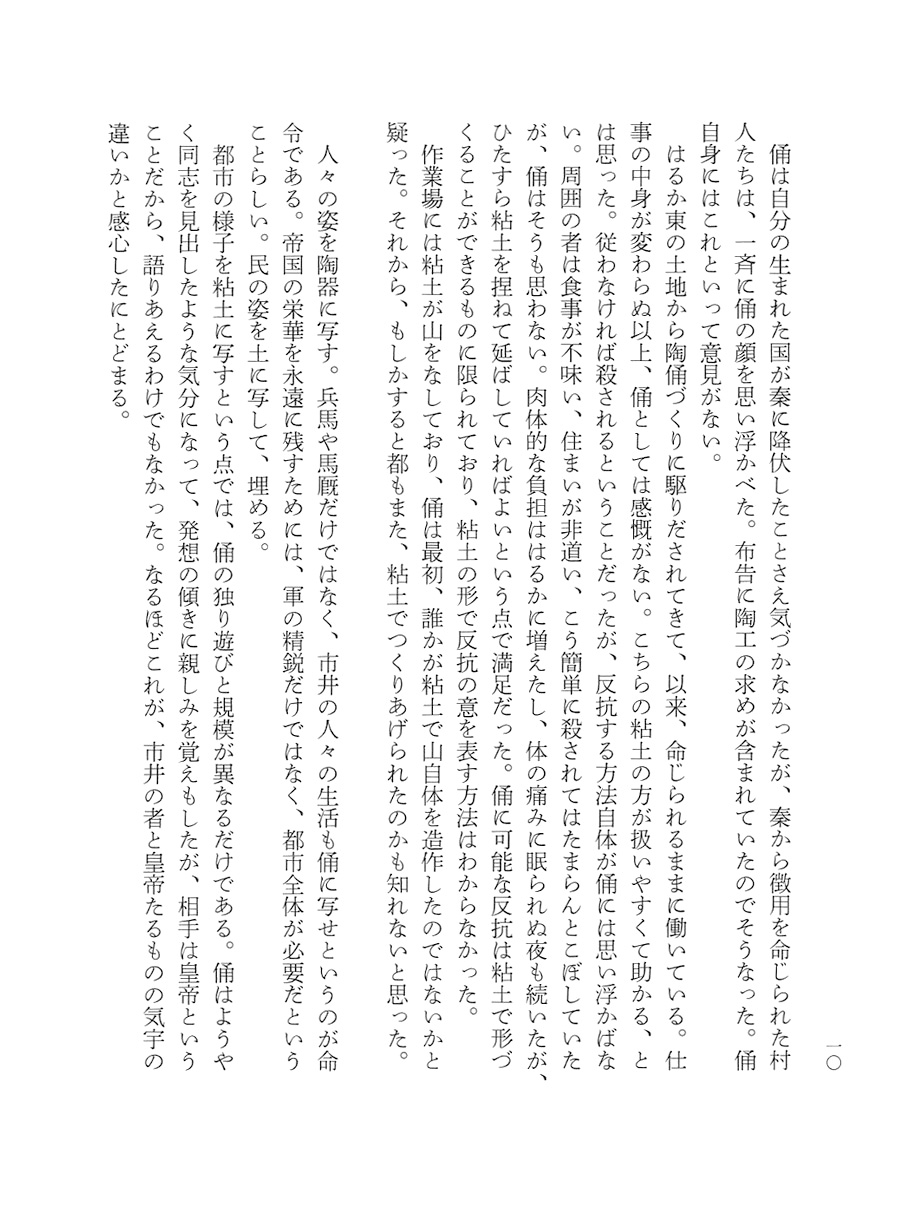 一〇
　俑は自分の生まれた国が秦に降伏したことさえ気づかなかったが、秦から徴用を命じられた村
人たちは、一斉に俑の顔を思い浮かべた。布告に陶工の求めが含まれていたのでそうなった。俑
自身にはこれといって意見がない。
　はるか東の土地から陶俑づくりに駆りだされてきて、以来、命じられるままに働いている。仕
事の中身が変わらぬ以上、俑としては感慨がない。こちらの粘土の方が扱いやすくて助かる、と
は思った。従わなければ殺されるということだったが、反抗する方法自体が俑には思い浮かばな
い。周囲の者は食事が不味い、住まいが非道い、こう簡単に殺されてはたまらんとこぼしていた
が、俑はそうも思わない。肉体的な負担ははるかに増えたし、体の痛みに眠られぬ夜も続いたが、
ひたすら粘土を捏ねて延ばしていればよいという点で満足だった。俑に可能な反抗は粘土で形づ
くることができるものに限られており、粘土の形で反抗の意を表す方法はわからなかった。
　作業場には粘土が山をなしており、俑は最初、誰かが粘土で山自体を造作したのではないかと
疑った。それから、もしかすると都もまた、粘土でつくりあげられたのかも知れないと思った。
　人々の姿を陶器に写す。兵馬や馬厩だけではなく、市井の人々の生活も俑に写せというのが命
令である。帝国の栄華を永遠に残すためには、軍の精鋭だけではなく、都市全体が必要だという
ことらしい。民の姿を土に写して、埋める。
　都市の様子を粘土に写すという点では、俑の独り遊びと規模が異なるだけである。俑はようや
く同志を見出したような気分になって、発想の傾きに親しみを覚えもしたが、相手は皇帝という
ことだから、語りあえるわけでもなかった。なるほどこれが、市井の者と皇帝たるものの気宇の
違いかと感心したにとどまる。